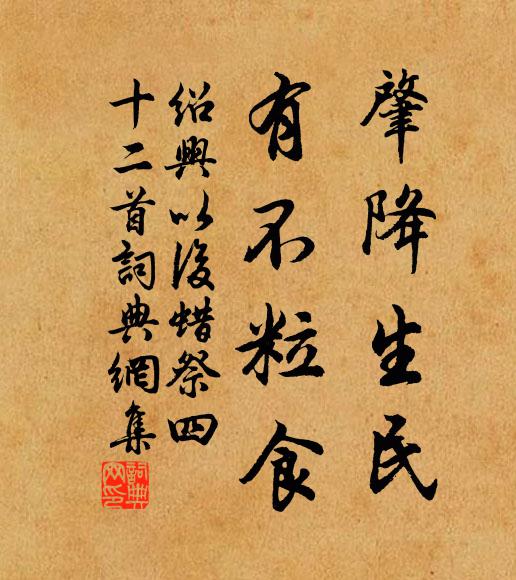 肇降生民
有不粒食
紹興以後蜡祭四
十二首詞典網集
詞典網印